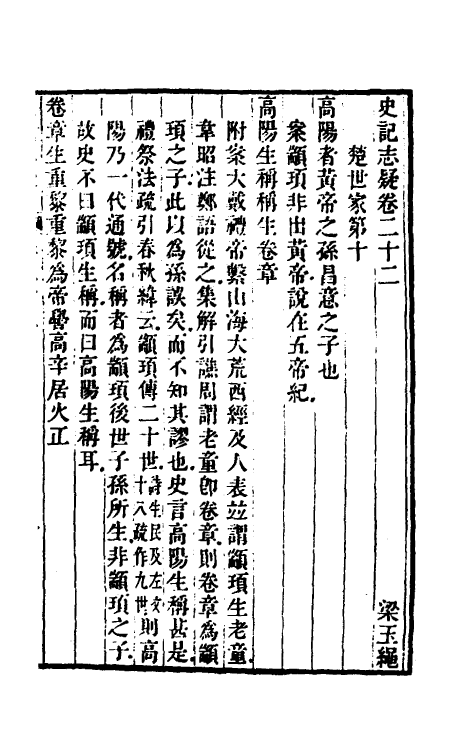 史記志疑卷二十二
梁玉繩
楚世家第十
高陽者黃帝之孫昌意之子也
案顓頊非出黃帝說在五帝紀
高陽生稱稱生卷章
附案大戴禮帝繫山海大荒西經及人表竝謂顓頊生老童
韋昭注鄭語從之集解引譙周謂老童卽卷章則卷章為顓
頊之子此以為孫誤矣而不知其謬也史言高陽生稱甚是
禮祭法疏引春秋緯云顓頊傳二十世詩生民及左文十八疏作九世則高
陽乃一代通號名稱者為顓頊後世子孫所生非顓頊之子
故史不曰顓頊生稱而曰高陽生稱耳
卷章生重黎重黎為帝嚳高辛居火正